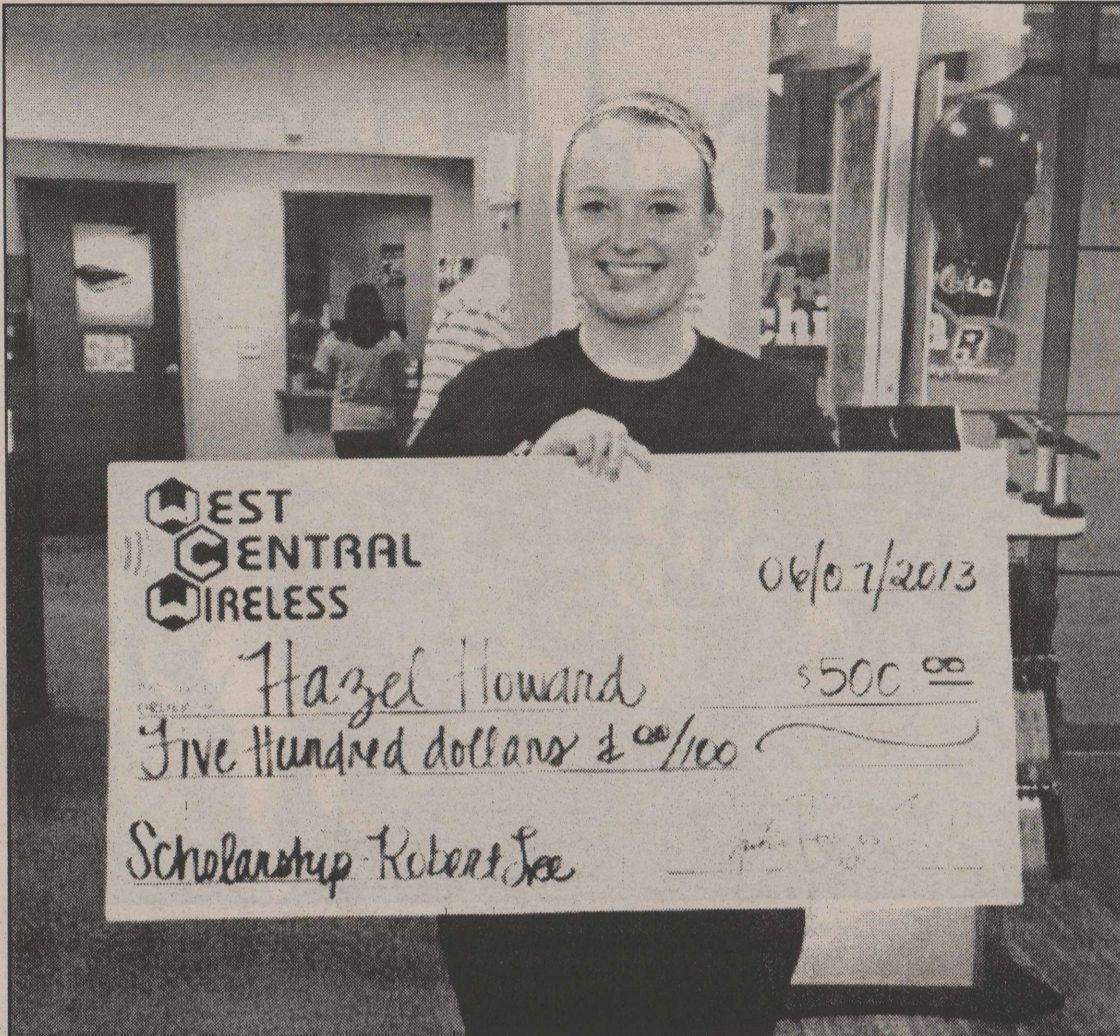 WEST
CENTRAL
WIRELESS
06/07/2013
Hazel Howard
$500 00
Five Hundred dollars & 00/100
Scholarship Robert Lee